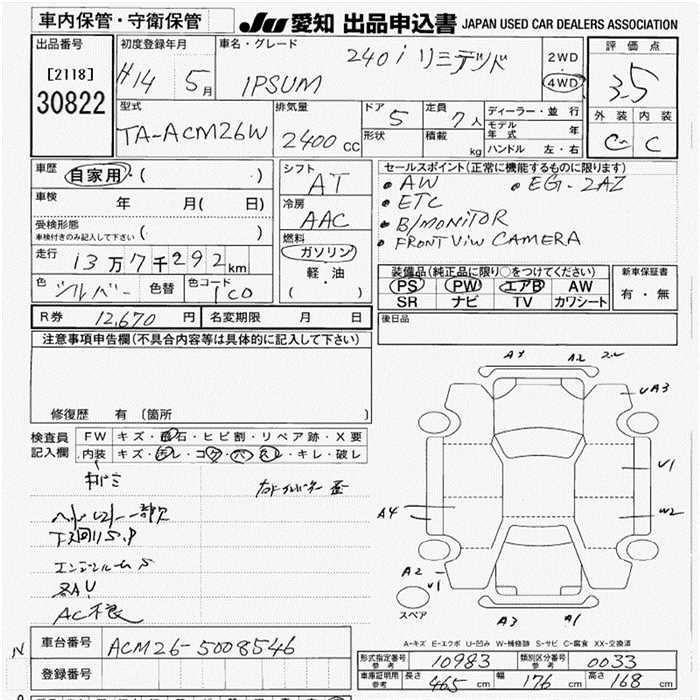 車内保管・守衛保管
JU 愛知 出品申込書 JAPAN USED CAR DEALERS ASSOCIATION
出品番号
[2118]
30822
初度登録年月
H14 5月
車名・グレード
IPSUM 240i リミテッド
2WD
4WD
評価点
3.5
外装 内装
C- C
型式
TA-ACM26W
排気量
2400 cc
ドア 5
形状
定員 7人
積載 kg
ディーラー・並行
モデル年式 年
ハンドル 左・右
車歴
自家用・( )
車検 年 月( 日)
受検形態
車検付きのみ記入して下さい ( )
走行 13万7千292km
色 シルバー 色替 色コード 1C0
シフト
AT
冷房
AAC
燃料
ガソリン
軽・油
( )
セールスポイント(正常に機能するものに限ります)
・AW ・EG-2AZ
・ETC
・B/MONITOR
・FRONT ViW CAMERA
装備品(純正品に限り○をつけてください)
PS PW エアB AW
SR ナビ TV カワシート
新車保証書
有・無
R券 12,670円 名変期限 月 日
後日品
注意事項申告欄(不具合内容等は具体的に記入して下さい)
修復歴 有 〔箇所 〕
検査員記入欄
FW キズ・飛石・ヒビ割・リペア跡・X要
内装 キズ・汚レ・コゲ・穴・スレ・キレ・破レ
下廻りS.P
エンジンルームS
AC不良
A2
A3
V1
W2
A4
A2
V1
A3
A1
スペア
A-キズ E-エクボ U-凹み W-補修跡 S-サビ C-腐食 XX-交換済
車台番号 ACM26-5008546
登録番号
形式指定番号 参考 10983
類別区分番号 参考 0033
車庫証明用 参考 長さ 465cm 幅 176cm 高さ 168cm